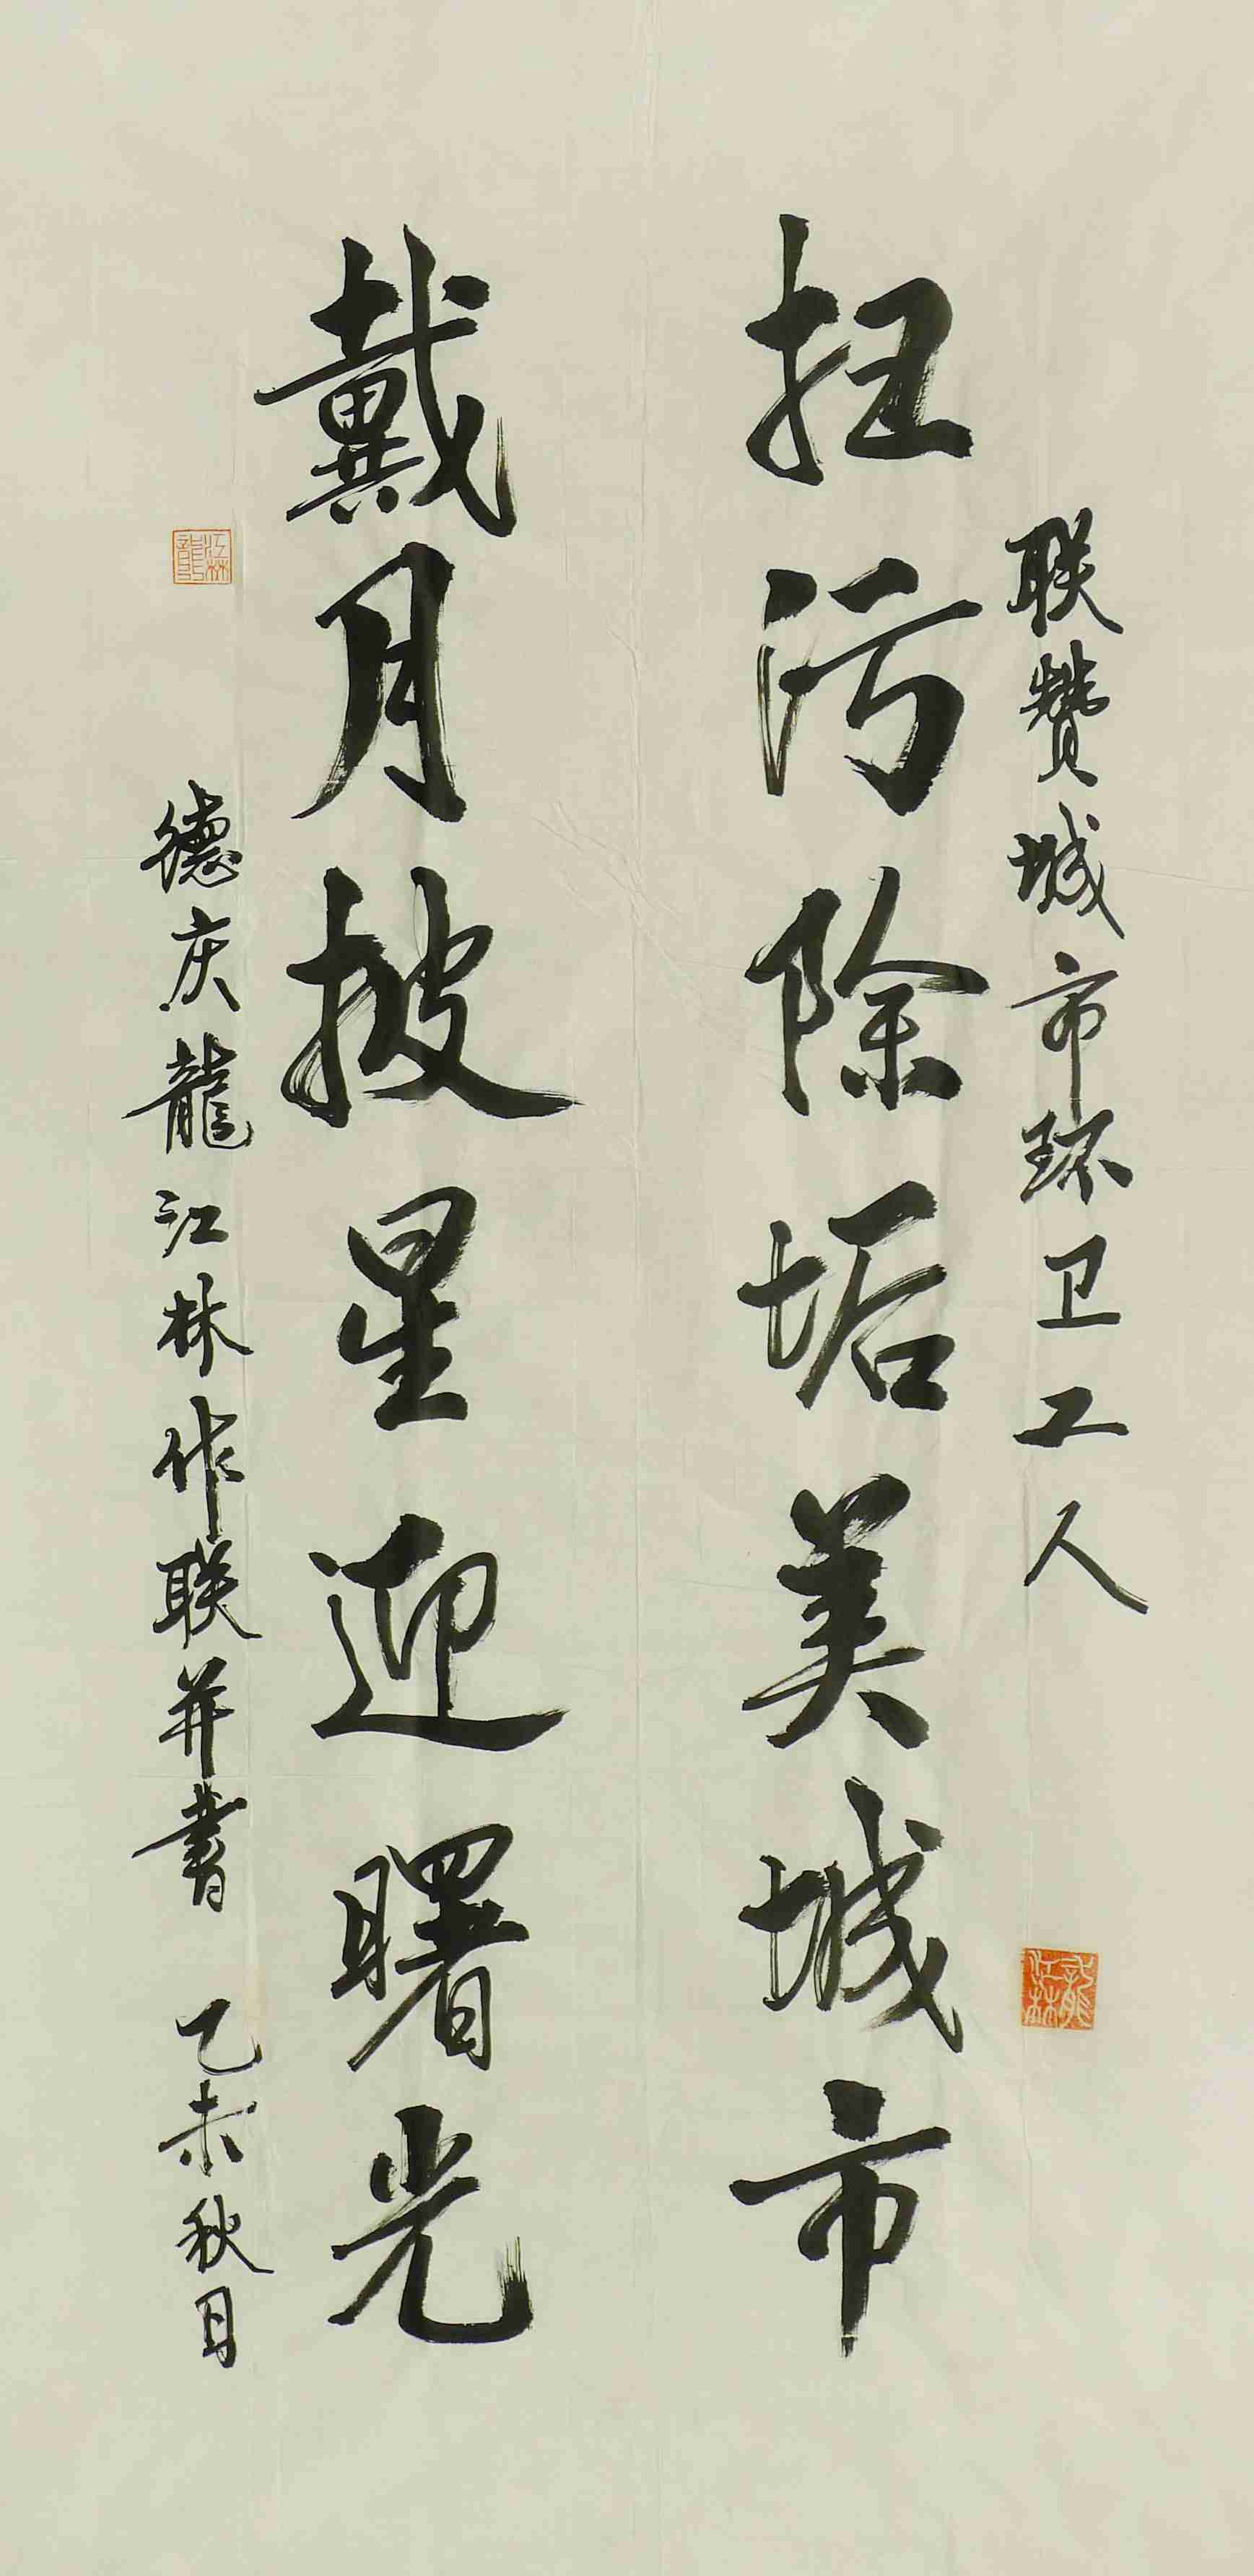 联赞城市环卫工人
扫污除垢美城市
戴月披星迎曙光
德庆龍江林作联并書 乙未秋月
江林
龍